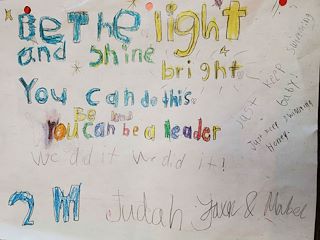 Be The light
and shine
bright
You can do this.
Be kind
You can be a leader
we did it we did it!
2M Judah & Mabel
Just keep swimming
baby!
Just keep swimming
Honey.